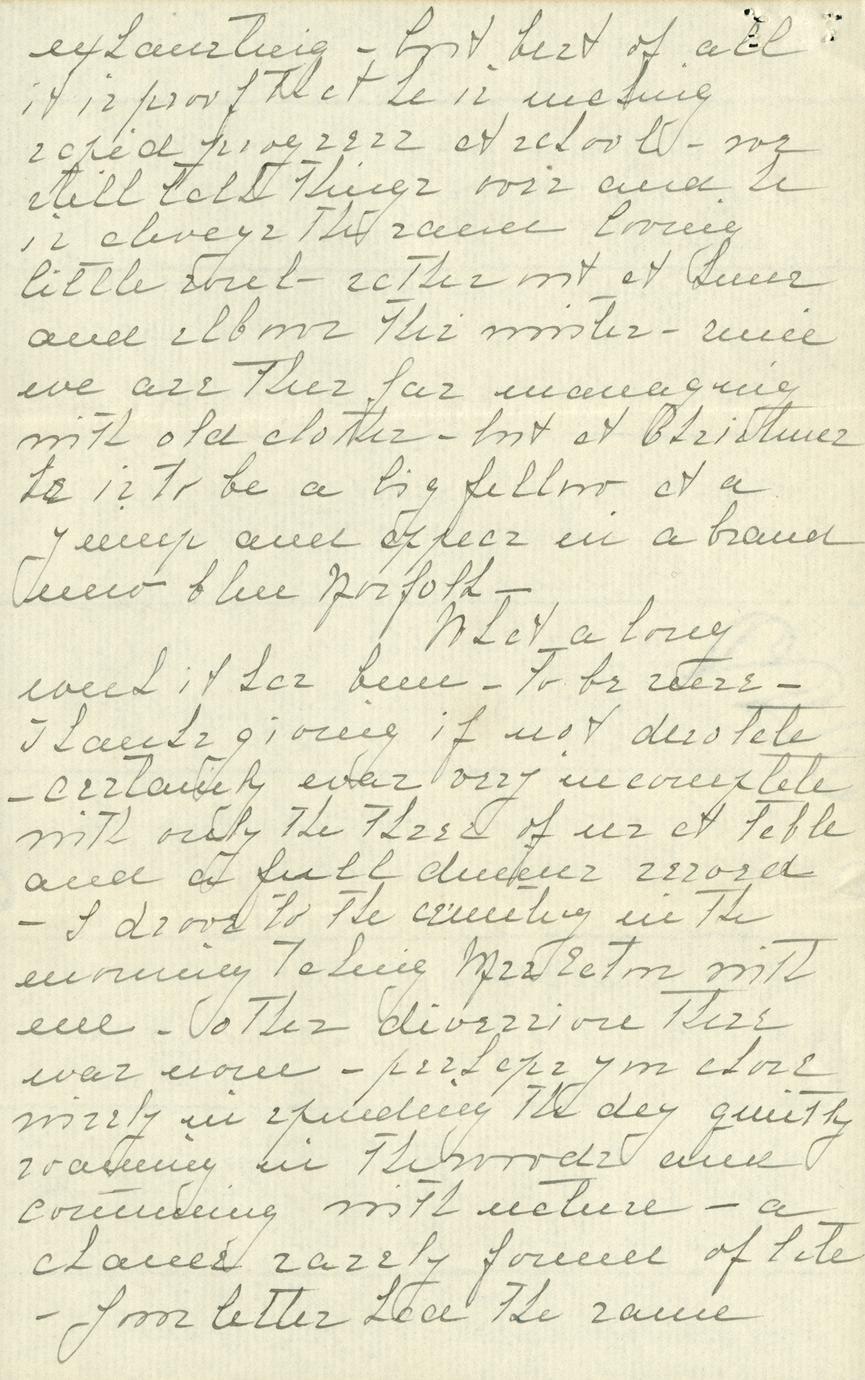 exhausting - but best of all
it is proof that he is making
rapid progress at school - we
still talk things over and he
is always the same loving
little soul - rather out at knees
and elbows this winter - since
we are thus far managing
with old clothes - but at Christmas
he is to be a big fellow at a
jump and appear in a brand
new blue Norfolk -
What a long
week it has been - to be sure -
Thanksgiving if not desolate
- certainly was very incomplete
with only the three of us at table
and a full dinner served
- I drove to the cemetery in the
morning taking Mrs Eaton with
me - other diversions there
was none - perhaps you chose
wisely in spending the day quietly
roaming in the woods and
communing with nature - a
chance rarely found of late
- Your letter had the same